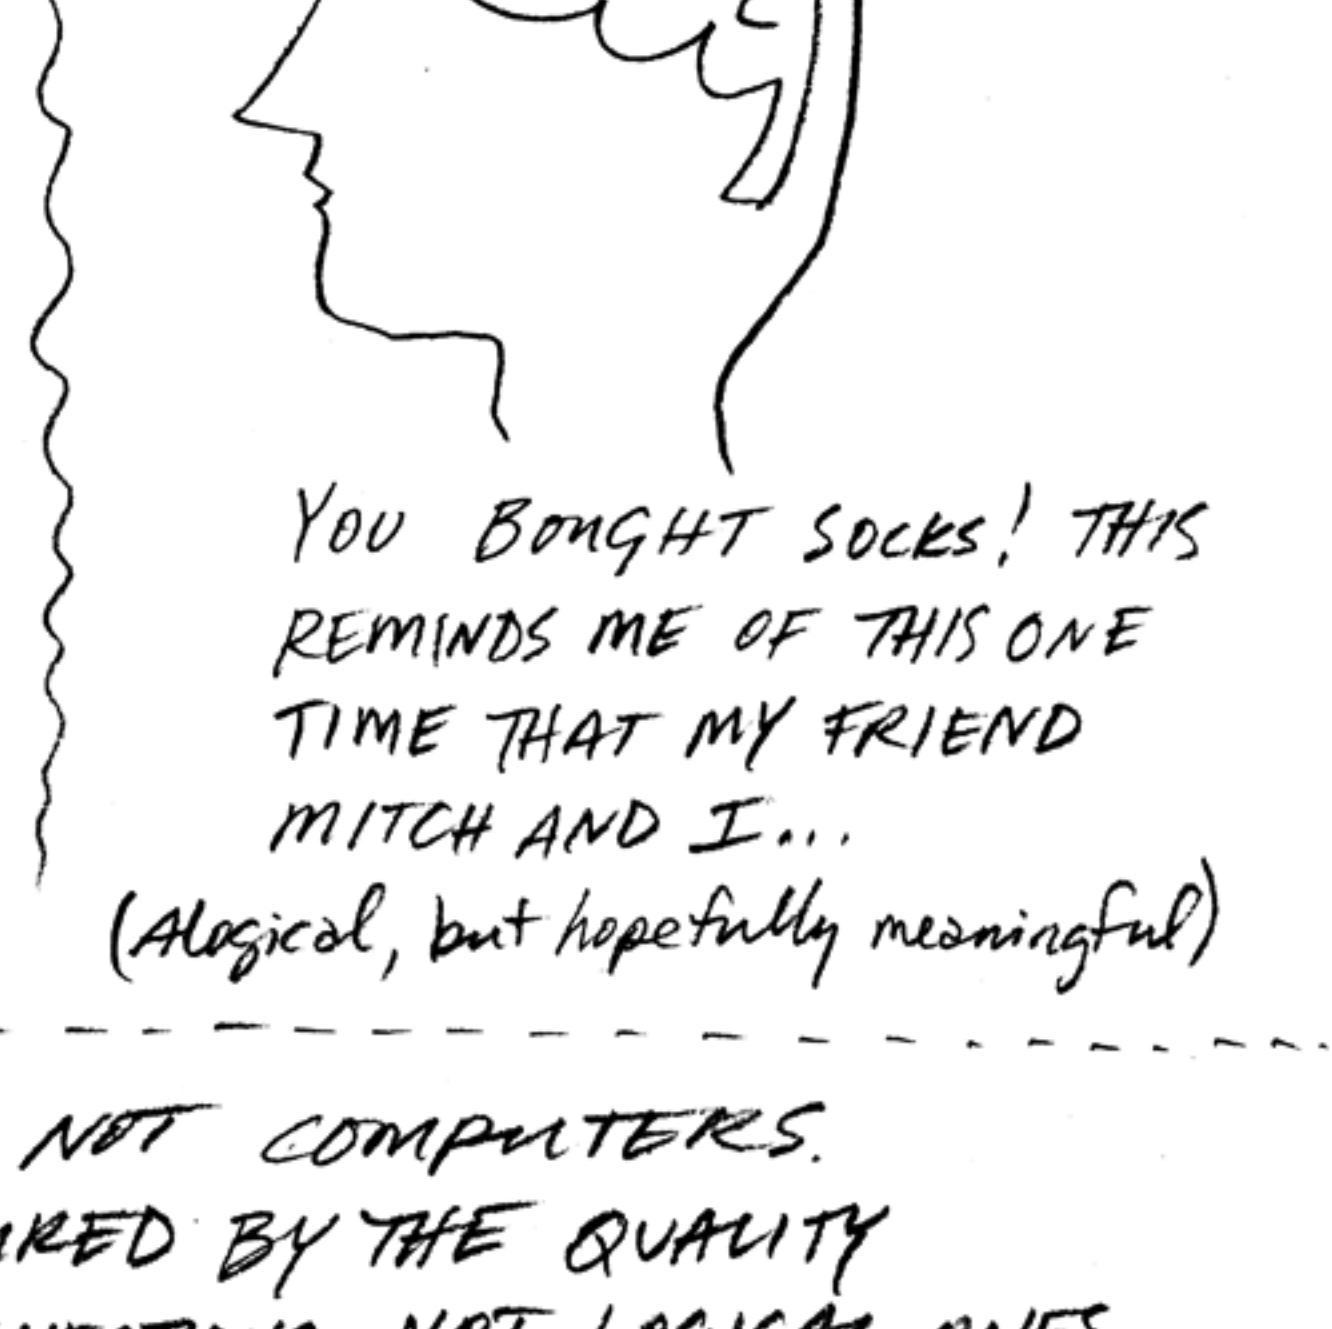 YOU BOUGHT SOCKS! THIS
REMINDS ME OF THIS ONE
TIME THAT MY FRIEND
MITCH AND I...
(Alogical, but hopefully meaningful)
NOT COMPUTERS.
BY THE QUALITY
NOT LOGICAL ONES